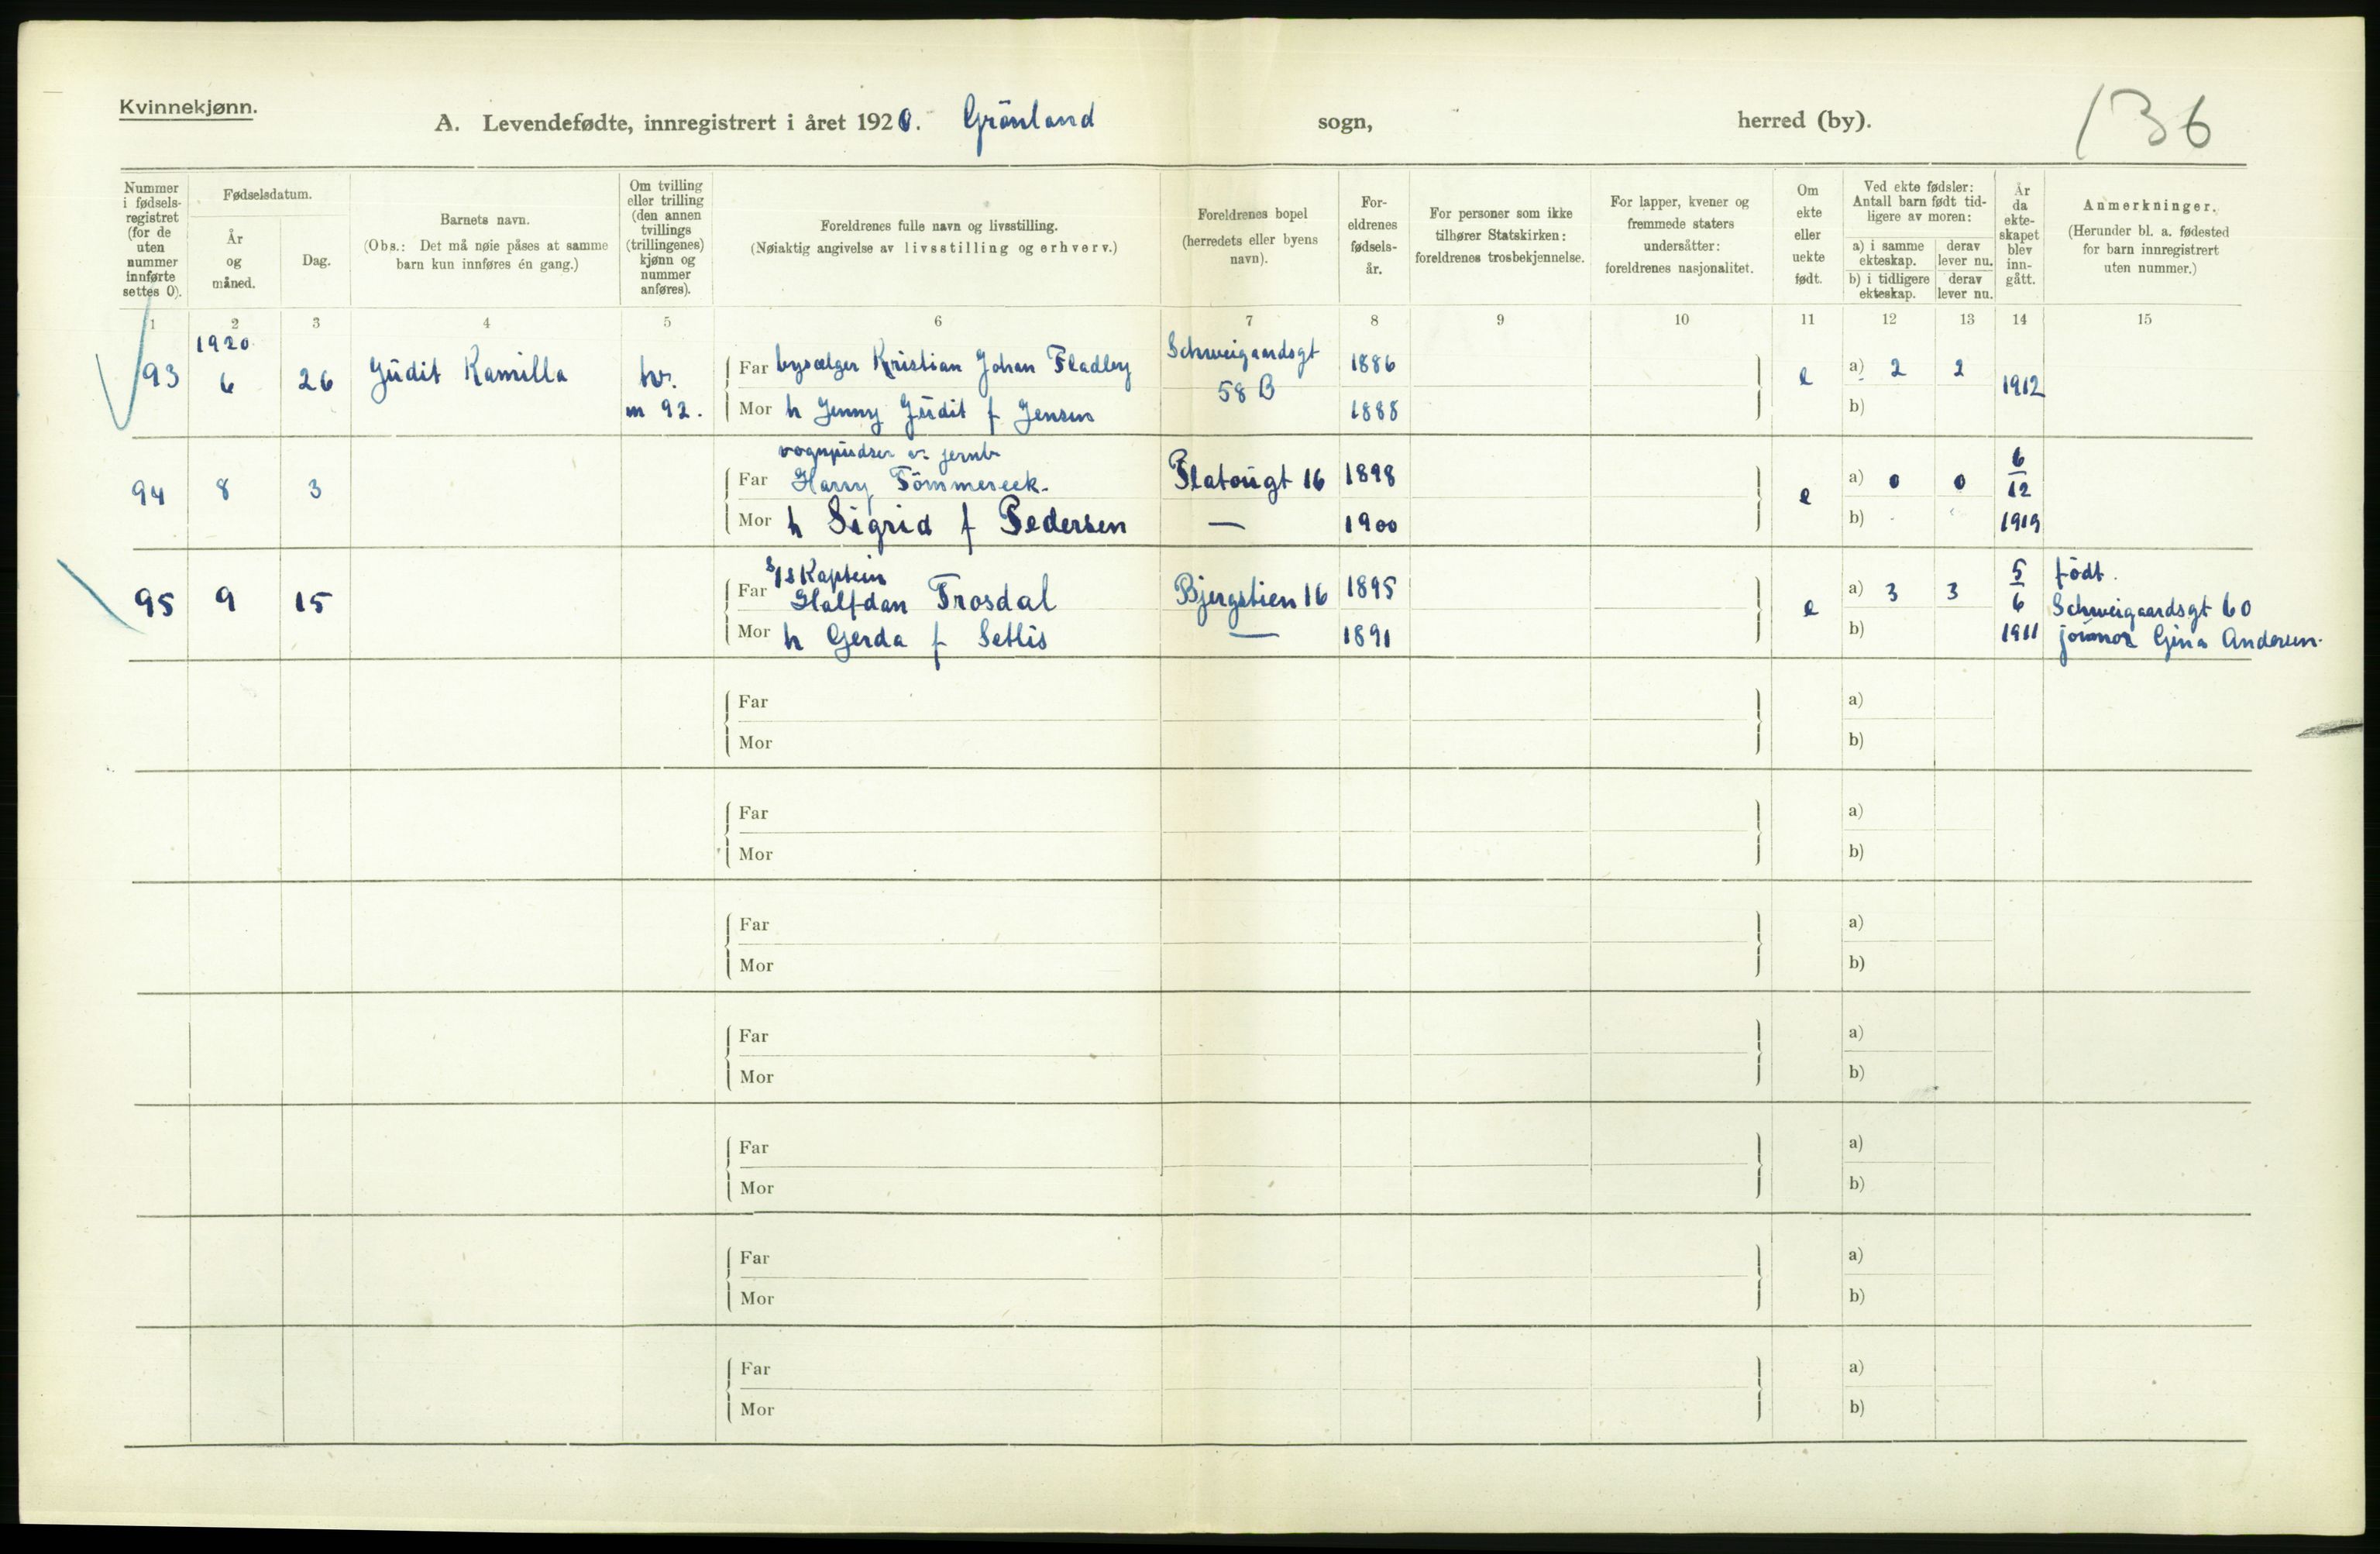 Kvinnekjønn.
A. Levendefødte, innregistrert i året 1920. Grönland sogn, herred (by). 136
Nummer i fødselsregistret (for de uten nummer innførte settes 0).
Fødselsdatum.
År og måned.
Dag.
Barnets navn.
(Obs.: Det må nøie påses at samme barn kun innføres én gang.)
Om tvilling eller trilling (den annen tvillings (trillingenes) kjønn og nummer anføres).
Foreldrenes fulle navn og livsstilling.
(Nøiaktig angivelse av livsstilling og erhverv.)
Foreldrenes bopel (herredets eller byens navn).
Foreldrenes fødselsår.
For personer som ikke tilhører Statskirken: foreldrenes trosbekjennelse.
For lapper, kvener og fremmede staters undersåtter: foreldrenes nasjonalitet.
Om ekte eller uekte født.
Ved ekte fødsler: Antall barn født tidligere av moren:
a) i samme ekteskap. derav lever nu.
b) i tidligere ekteskap. derav lever nu.
År da ekteskapet blev inngått.
Anmerkninger.
(Herunder bl. a. fødested for barn innregistrert uten nummer.)
1 2 3 4 5 6 7 8 9 10 11 12 13 14 15
1920
93 6 26 Jüdit Kamilla tv. m 92. Far bysælger Kristian Johan Fladby Schweigaardsgt 58 B 1886 e a) 2 2 1912
Mor h Jenny Jüdit f Jensen 1888 b)
vognpudser v. jernb
94 8 3 Far Harry Tömmereek. Platoügt 16 1898 e a) 0 0 6/12 1919
Mor h Sigrid f Pedersen — 1900 b)
s/s Kaptein
95 9 15 Far Halfdan Trosdal Bjergstien 16 1895 e a) 3 3 5/6 1911 födt. Schweigaardsgt 60
Mor h Gerda f Setlis — 1891 b) jormor Gina Andersen.
Far a)
Mor b)
Far a)
Mor b)
Far a)
Mor b)
Far a)
Mor b)
Far a)
Mor b)
Far a)
Mor b)
Far a)
Mor b)